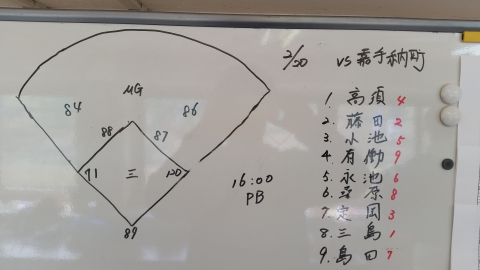 2/20 vs 嘉手納町
μG
84 86
88 87
71 三 120
89
16:00
PB
1. 高須 4
2. 藤田 2
3. 小池 5
4. 有働 9
5. 永池 6
6. 桑原 8
7. 定岡 3
8. 三島 1
9. 島田 7